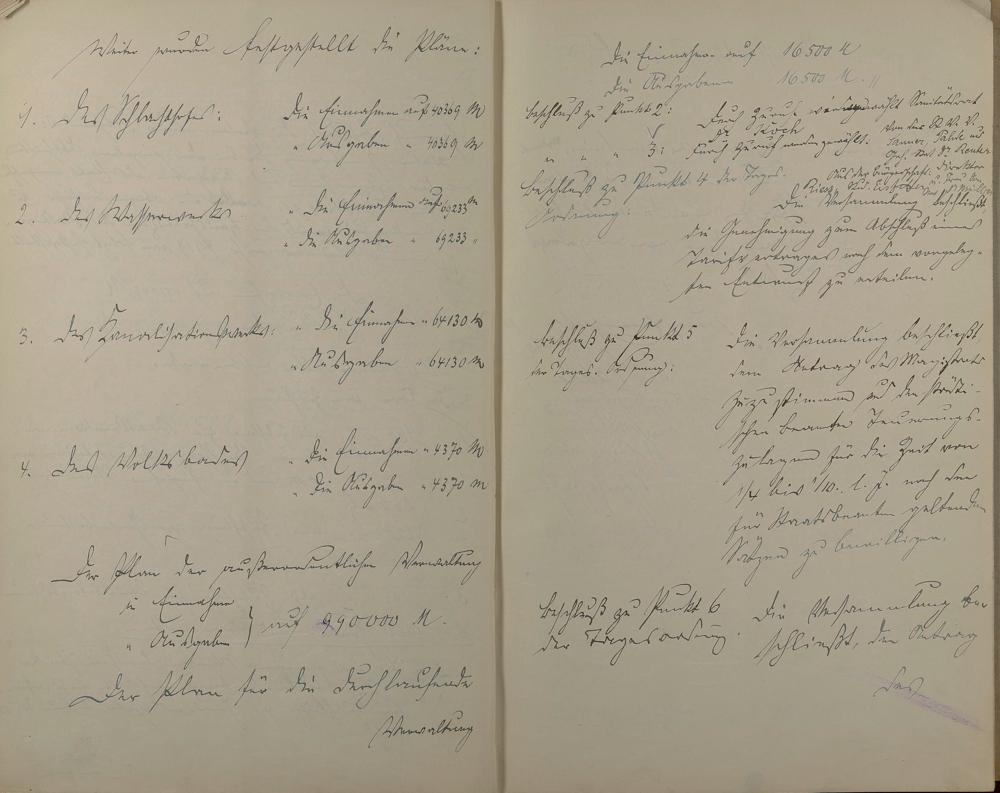 Weiter wurden festgestellt die Pläne:
1. des Schlachthofes: die Einnahmen auf 40369 M
" Ausgaben " 40369 M
2. des Wasserwerks " die Einnahmen auf 69233 M
" die Ausgaben " 69233 "
3. des Kanalisationswerks: " die Einnahmen " 64130 M
" Ausgaben " 64130 M
4. des Volksbades " die Einnahmen " 4370 M
" die Ausgaben " 4370 M
Der Plan der außerordentlichen Verwaltung
in Einnahmen
" Ausgaben } auf 990000 M.
Der Plan für die durchlaufende
Verwaltung
die Einnahmen auf 16500 M
die Ausgaben 16500 M. "
Beschluß zu Punkt 2: Durch Zuruf wird gewählt Sanitätsrat
Dr. Koch
" " " 3: Durch Zuruf werden gewählt. Von der St. V. V.
Geh. Rat Dr.
Aus der Bürgerschaft: Direktor
Beschluß zu Punkt 4 der Tages-
Ordnung: Die Versammlung beschließt,
die Genehmigung zum Abschluß eines
Tarifvertrages nach dem vorgeleg-
ten Entwurf zu erteilen.
Beschluß zu Punkt 5
der Tages-Ordnung:
Die Versammlung beschließt
dem Antrag des Magistrats
zuzustimmen und den städti-
schen Beamten Teuerungs-
zulagen für die Zeit von
1/4 bis 1/10. l. J. nach den
für Staatsbeamten geltenden
Sätzen zu bewilligen.
Beschluß zu Punkt 6
der Tagesordnung.
Die Versammlung be-
schließt, den Antrag
des